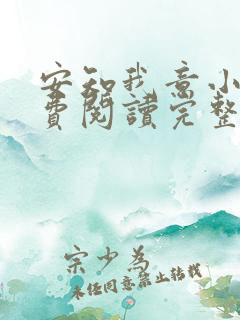 安知我意小
费阅读完整
宋少为
未经同意禁止转载